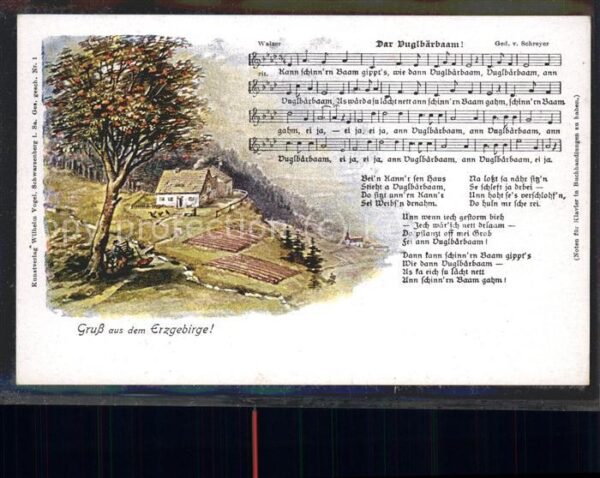 Dar Vuglbärbaam!
Walzer
Ged. v. Schreyer
Kann schinn'rn Baam gippt's, wie dann Vuglbärbaam, Vuglbärbaam, ann
Vuglbärbaam, As wärd a su lächt nett ann schinn'rn Baam gahm, schinn'rn Baam
gahm, ei ja, — ei ja, ei ja, ann Vuglbärbaam, Vuglbärbaam, ann
Vuglbärbaam, ei ja, ei ja, ann Vuglbärbaam, ei ja.
Bei'n Kann'r sen Haus
Stieht a Vuglbärbaam,
Do sitzt ann'rn Kann'r
Sei Weibs'n denahm.
Na loßt sa nähr sitz'n
Se schleft ja drbei —
Unn hoht se's verschlohf'n,
Do huln mr sche rei.
Unn wenn iech gestorm bieh
— Jech wär'sch nett delaam —
Do pflanzt off mei Grob
Fei ann Vuglbärbaam!
Dann kann schinn'rn Baam gippt's
Wie dann Vuglbärbaam —
As ka eich su lächt nett
Ann schinn'rn Baam gahm!
(Noten für Klavier in Buchhandlungen zu haben.)
Kunstverlag Wilhelm Vogel, Schwarzenberg i. Sa. Ges. gesch. Nr. 1
Gruß aus dem Erzgebirge!
copy protection